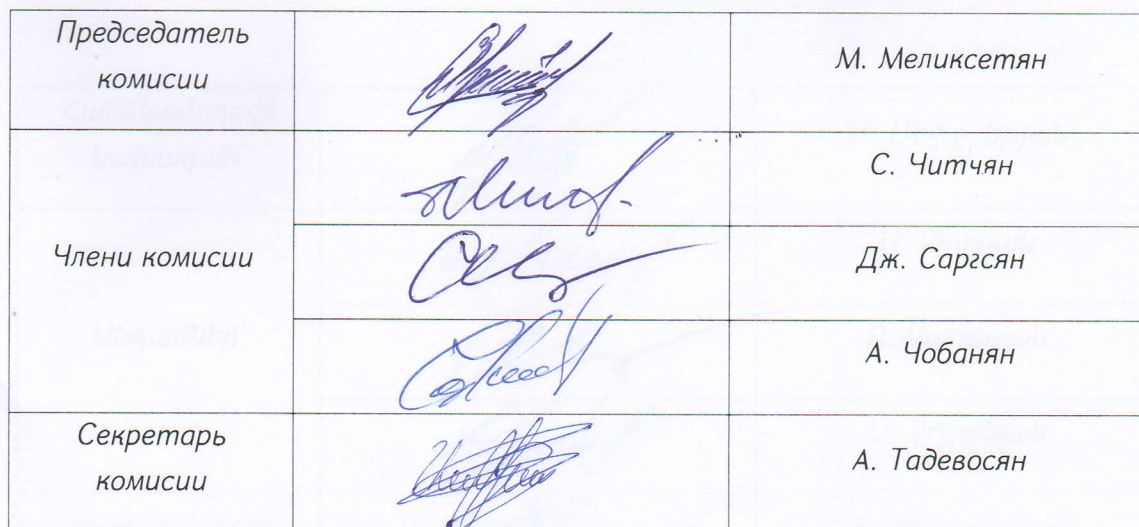 Председатель
комисии
М. Меликсетян
С. Читчян
Члени комисии
Дж. Саргсян
А. Чобанян
Секретарь
комисии
А. Тадевосян